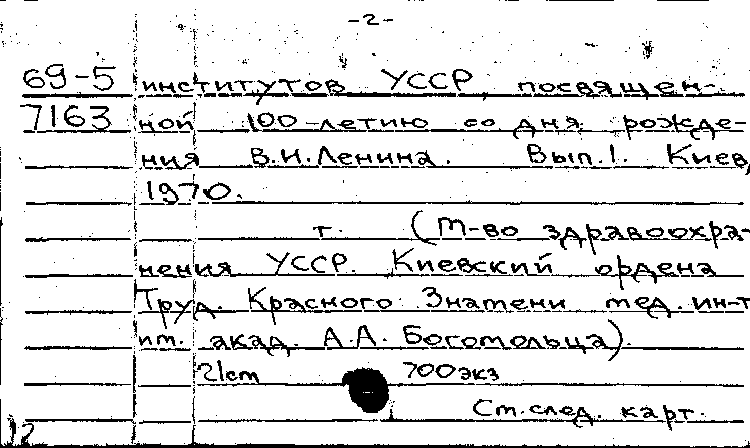 -2-
69-5 институтов УССР, посвящен-
7163 ной 100-летию со дня рожде-
ния В.И.Ленина. Вып.1. Киев,
1970.
т. (М-во здравоохра-
нения УССР. Киевский ордена
Труд. Красного Знамени мед. ин-т
им. акад. А.А. Богомольца).
21cm 700экз
См.след. карт.
12